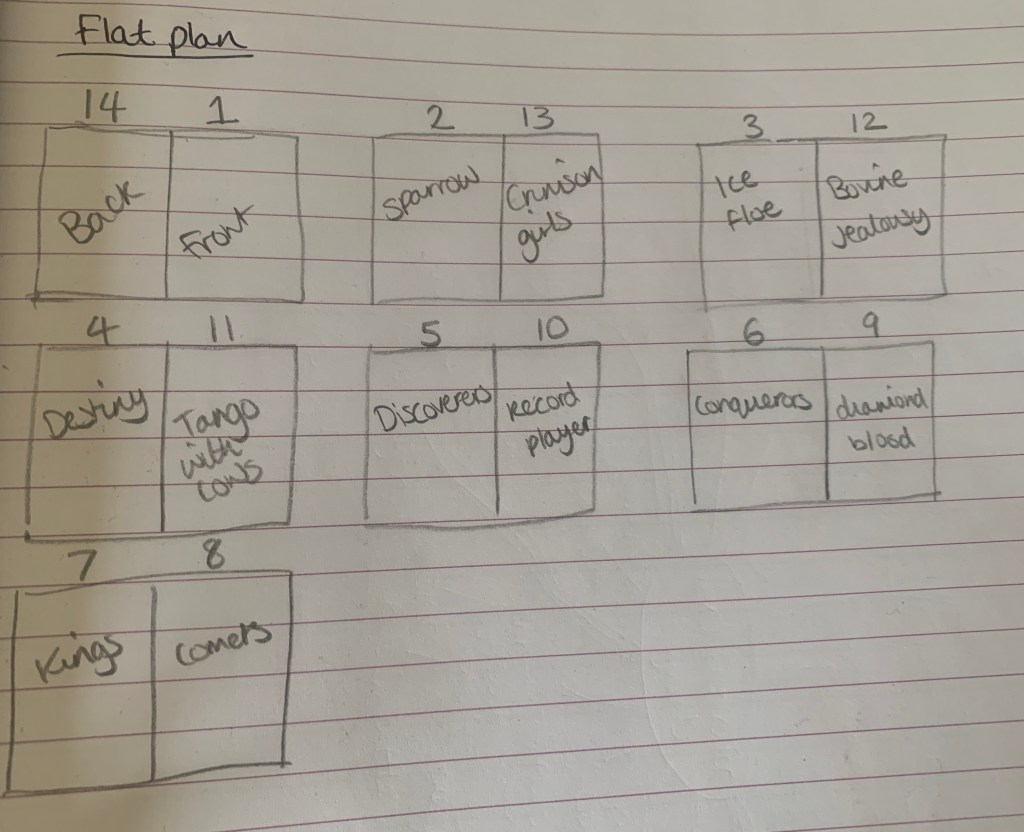 Flat plan
14 1 2 13 3 12
Back
Front
Sparrow
Crimson
girls
Ice
floe
Bovine
Jealousy
4 11 5 10 6 9
Destiny
Tango
with
cows
Discoverers
Record
player
Conquerors
diamond
blood
7 8
Kings
Comets